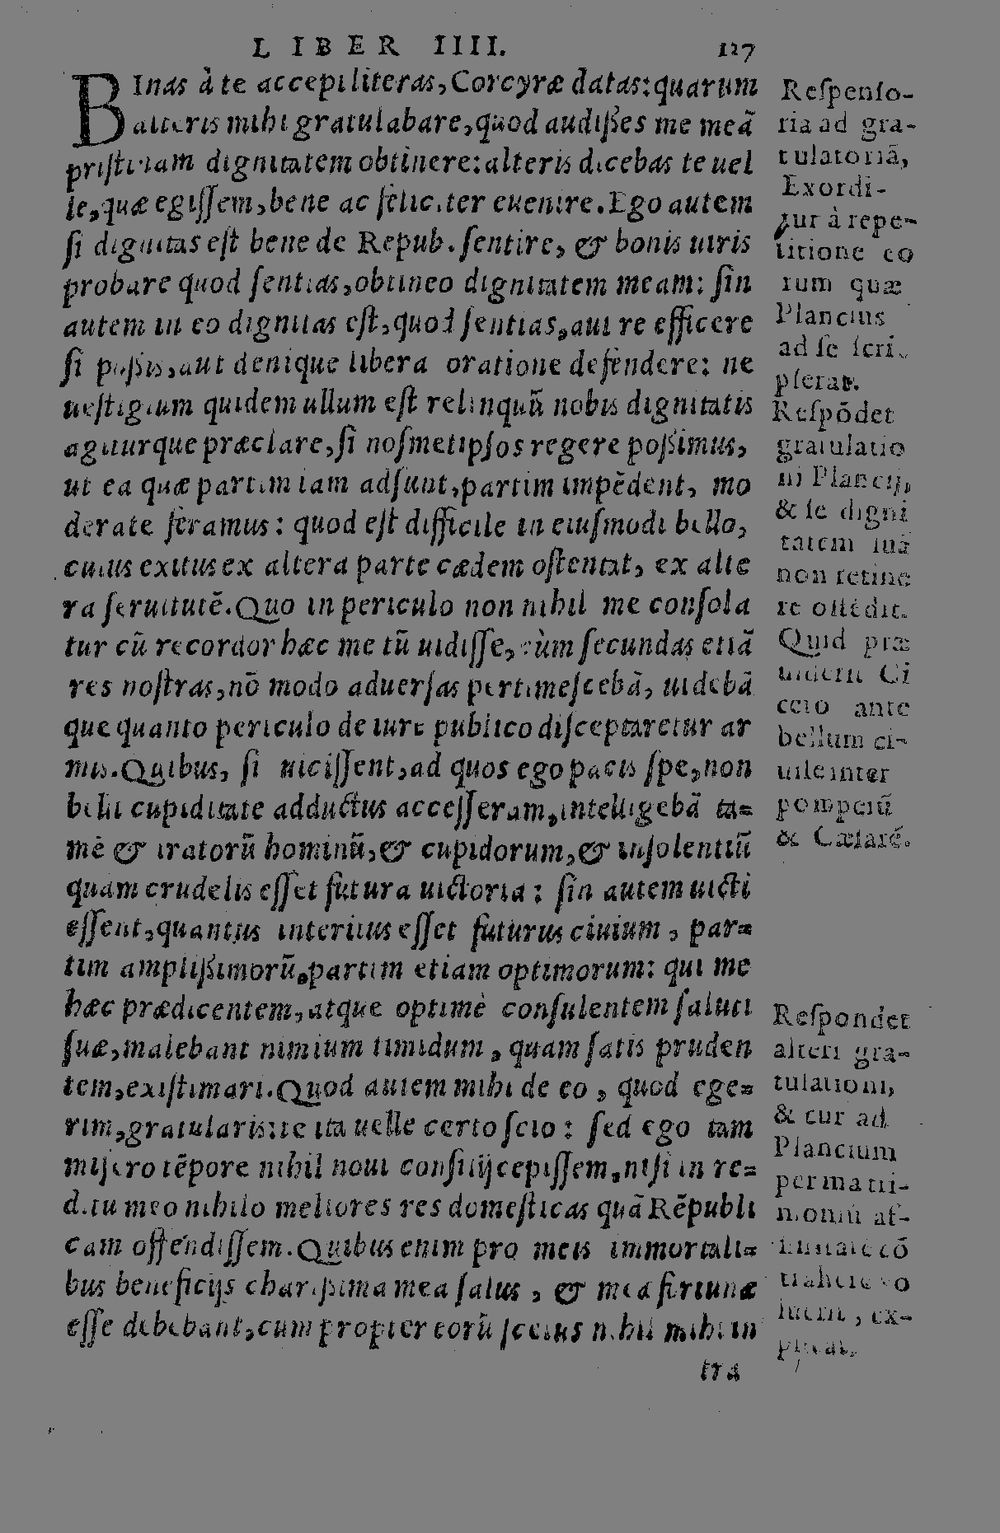 LIBER IIII. 127
BInas à te accepi literas, Corcyræ datas: quarum
alteris mihi gratulabare, quod audißes me meã
pristinam dignitatem obtinere: alteris dicebas te uel
le, quæ egissem, bene ac feliciter euenire. Ego autem
si dignitas est bene de Repub. sentire, & bonis uiris
probare quod sentias, obtineo dignitatem meam: sin
autem in eo dignitas est, quod sentias, aut re efficere
si possis, aut denique libera oratione defendere: ne
uestigium quidem ullum est relinquũ nobis dignitatis
agiturque præclare, si nosmetipsos regere poßimus,
ut ea quæ partim iam adsunt, partim impẽdent, mo
derate feramus: quod est difficile in eiusmodi bello,
cuius exitus ex altera parte cædem ostentat, ex alte
ra seruitutẽ. Quo in periculo non nihil me consola
tur cũ recordor hæc me tũ uidisse, cùm secundas etiã
res nostras, nõ modo aduersas pertimescebã, uidebã
que quanto periculo de iure publico disceptaretur ar
mis. Quibus, si uicissent, ad quos ego pacis spe, non
belli cupiditate adductus accesseram, intelligebã ta=
mẽ & iratorũ hominũ, & cupidorum, & insolentiũ
quam crudelis esset futura uictoria: sin autem uicti
essent, quantus interitus esset futurus ciuium, par=
tim amplißimorũ, partim etiam optimorum: qui me
hæc prædicentem, atque optimè consulentem saluti
suæ, malebant nimium timidum, quam satis pruden
tem, existimari. Quod autem mihi de eo, quod ege=
rim, gratularis: te ita uelle certo scio: sed ego tam
misero tẽpore nihil noui consilij cepissem, nisi in re=
ditu meo nihilo meliores res domesticas quã Rẽpubli
cam offendissem. Quibus enim pro meis immortali=
bus beneficijs charißima mea salus, & mea fortunæ
esse debebant, cum propter eorũ scelus nihil mihi in
tra
Respenso-
ria ad gra-
tulatoriã,
Exordi-
tur à repe-
titione eo
rum quæ
Plancius
ad se scri-
pserat.
Respõdet
gratulatio
ni Plancij,
& se digni
tatem suã
non retine
re ostẽdit.
Quid præ
uiderit Ci
cero ante
bellum ci-
uile inter
pompeiũ
& Cæsarẽ.
Respondet
alteri gra-
tulationi,
& cur ad
Plancium
per matri-
moniũ af-
finitatẽ cõ
trahere uo
luerit, ex-
plicat.